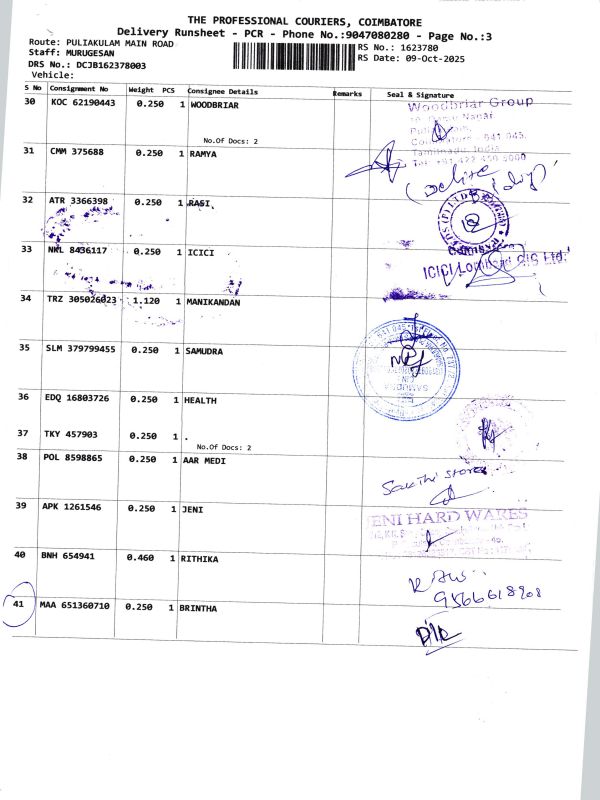 THE PROFESSIONAL COURIERS, COIMBATORE
Delivery Runsheet - PCR - Phone No.:9047080280 - Page No.:3
Route: PULIAKULAM MAIN ROAD
RS No.: 1623780
Staff: MURUGESAN
RS Date: 09-Oct-2025
DRS No.: DCJB162378003
Vehicle:
S No Consignment No Weight PCS Consignee Details Remarks Seal & Signature
30 KOC 62190443 0.250 1 WOODBRIAR
Woodbriar Group
No.Of Docs: 2
31 CMM 375688 0.250 1 RAMYA
32 ATR 3366398 0.250 1 RASI
33 NKL 8436117 0.250 1 ICICI
ICICI Lombard GIC Ltd.
34 TRZ 305026023 1.120 1 MANIKANDAN
35 SLM 379799455 0.250 1 SAMUDRA
36 EDQ 16803726 0.250 1 HEALTH
37 TKY 457903 0.250 1 .
No.Of Docs: 2
38 POL 8598865 0.250 1 AAR MEDI
Sakthi stores
39 APK 1261546 0.250 1 JENI
JENI HARD WARES
40 BNH 654941 0.460 1 RITHIKA
9566618908
41 MAA 651360710 0.250 1 BRINTHA